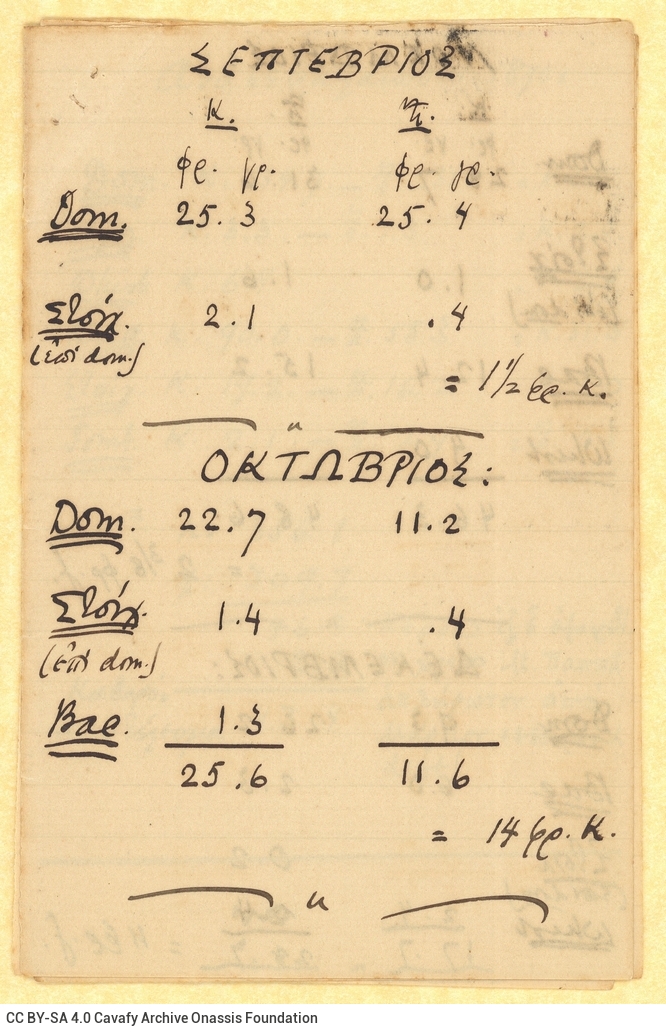 ΣΕΠΤΕΒΡΙΟΣ
κ. ζ.
φρ. γρ. φρ. γρ.
Dom. 25.3 25.4
Στοίχ. 2.1 .4
(ἐπὶ dom.)
= 1 1/2 φρ. κ.
"
ΟΚΤΩΒΡΙΟΣ:
Dom. 22.7 11.2
Στοίχ. 1.4 .4
(ἐπὶ dom.)
Βac. 1.3
25.6 11.6
= 14 φρ. κ.
"
CC BY-SA 4.0 Cavafy Archive Onassis Foundation